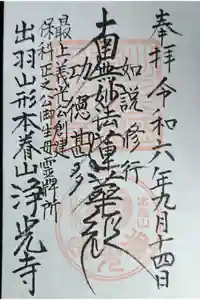 奉拝 令和六年九月十四日
如説修行
南無妙法蓮華経
功徳甚多
最上義光公創建
保科正之公御生母霊牌所
出羽山形本眷山 浄光寺